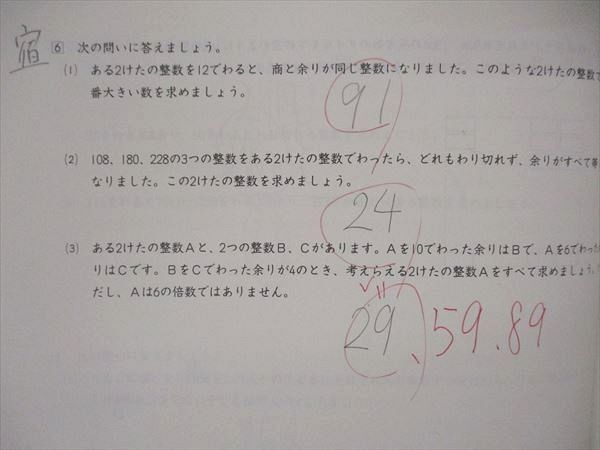 宿
6 次の問いに答えましょう。
(1) ある2けたの整数を12でわると、商と余りが同じ整数になりました。このような2けたの整数で
番大きい数を求めましょう。
91
(2) 108、180、228の3つの整数をある2けたの整数でわったら、どれもわり切れず、余りがすべて等
なりました。この2けたの整数を求めましょう。
24
(3) ある2けたの整数Aと、2つの整数B、Cがあります。Aを10でわった余りはBで、Aを6でわった
りはCです。BをCでわった余りが4のとき、考えらえる2けたの整数Aをすべて求めましょう。
だし、Aは6の倍数ではありません。
29、59、89